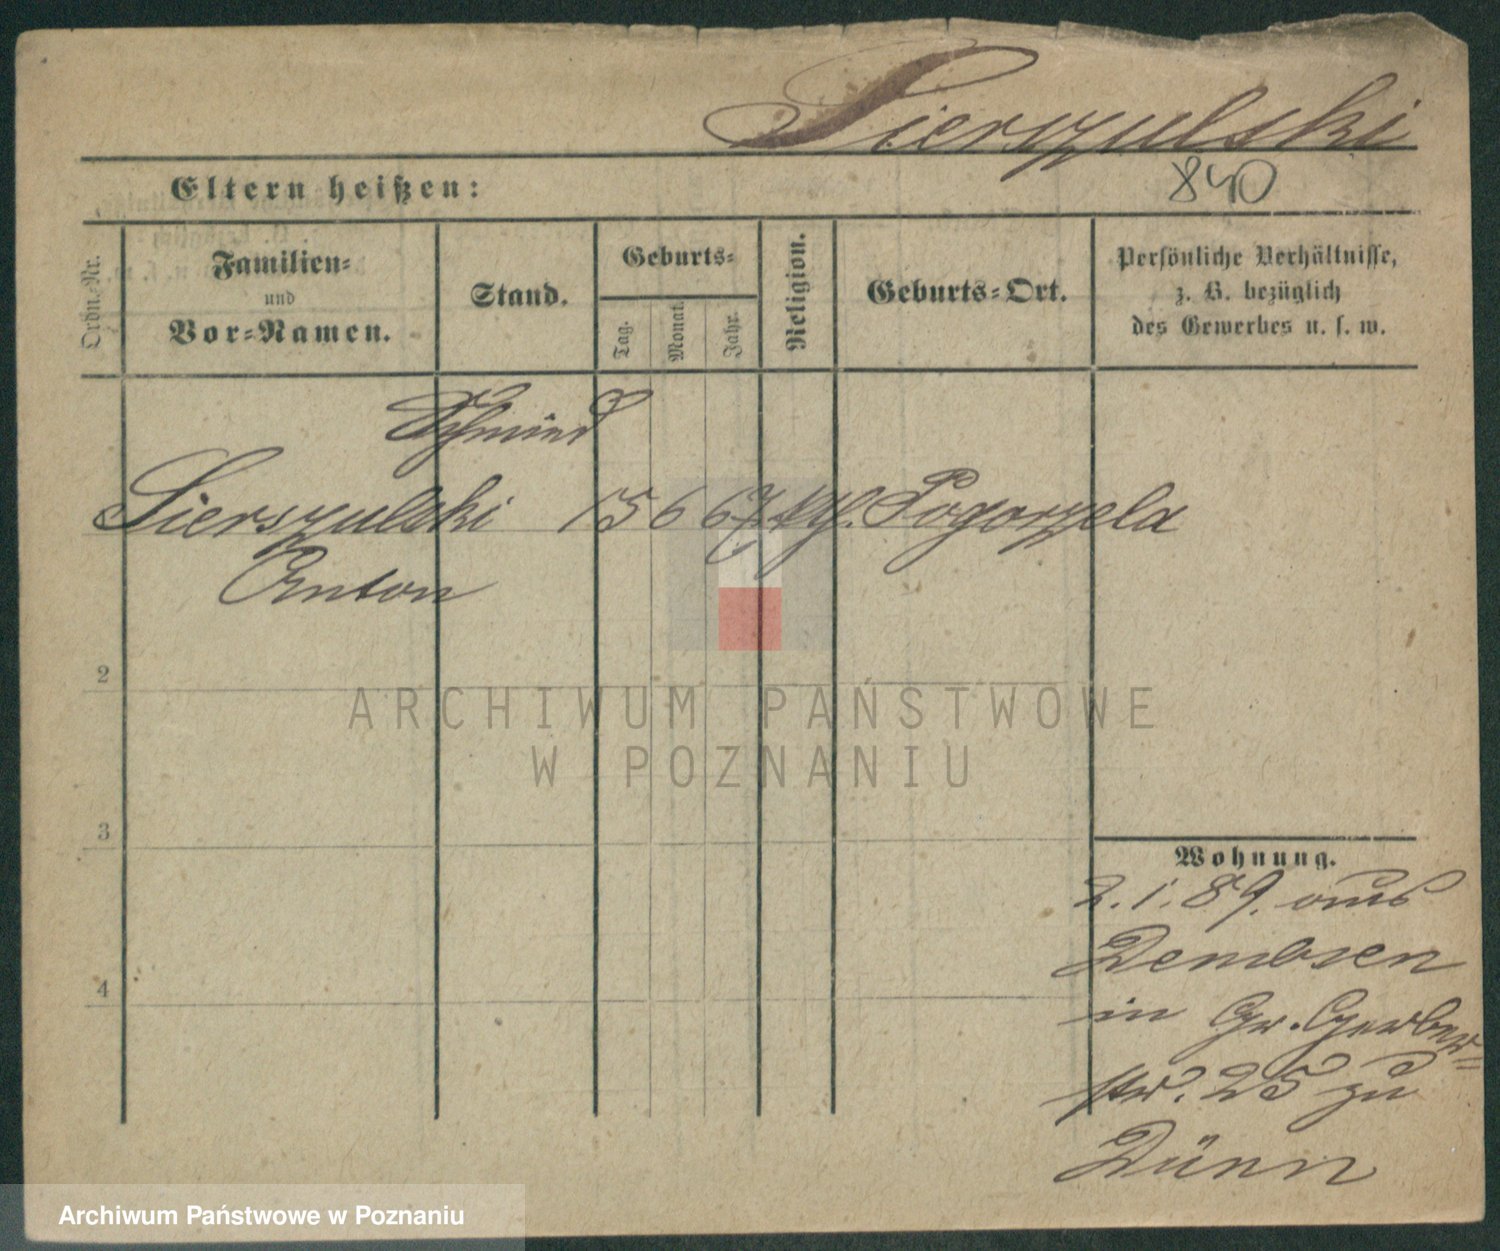 Sierszulski
840
Eltern heißen:
Ordn.-Nr.
Familien-
und
Vor-Namen.
Stand.
Geburts-
Tag.
Monat.
Jahr.
Religion.
Geburts-Ort.
Persönliche Verhältnisse,
z. B. bezüglich
des Gewerbes u. s. w.
Schmied
Sierszulski 15 6 67 kth. Pogorzela
Anton
2
3
4
ARCHIWUM PAŃSTWOWE
W POZNANIU
Wohnung.
2.1.89. aus
Dembsen
in Gr. Gerber-
str. 25 zu
Dünn
Archiwum Państwowe w Poznaniu